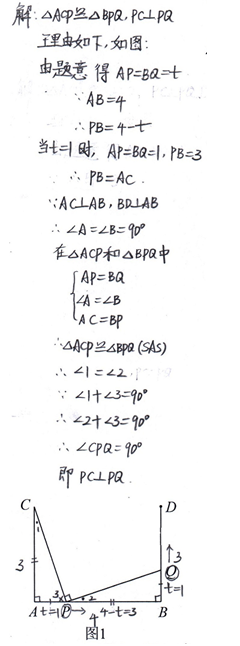 解: △ACP≌△BPQ, PC⊥PQ
理由如下, 如图:
由题意 得 AP=BQ=t
∵ AB=4
∴ PB=4-t
当t=1时, AP=BQ=1, PB=3
∴ PB=AC.
∵AC⊥AB, BD⊥AB
∴ ∠A=∠B=90°
在△ACP和△BPQ中
AP=BQ
∠A=∠B
AC=BP
∴△ACP≌△BPQ (SAS)
∴ ∠1=∠2.
∵ ∠1+∠3=90°
∴ ∠2+∠3=90°
∴ ∠CPQ=90°
即 PC⊥PQ.
C D
1
3 ↑3
Q
t=1
3 2
A t=1 P → 4 4-t=3 B
图1